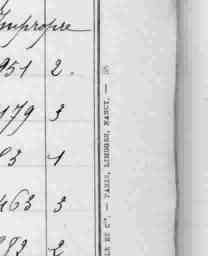 Impropre
951 2.
179 3
83 1
463 3
982 2
LE ET Cie. — PARIS, LIMOGES, NANCY. —